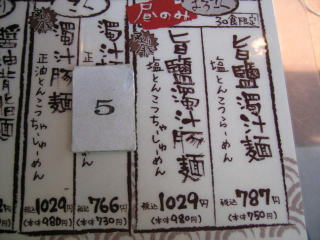 昼のみ
30食限定
旨鹽濁汁麺
塩とんこつらーめん
税込787円
(本体750円)
旨鹽濁汁豚麺
塩とんこつちゃーしゅーめん
税込1029円
(本体980円)
5
税込766円
(本体730円)
濁汁豚麺
正油とんこつちゃーしゅーめん
税込1029円
(本体980円)
醤油背脂麺